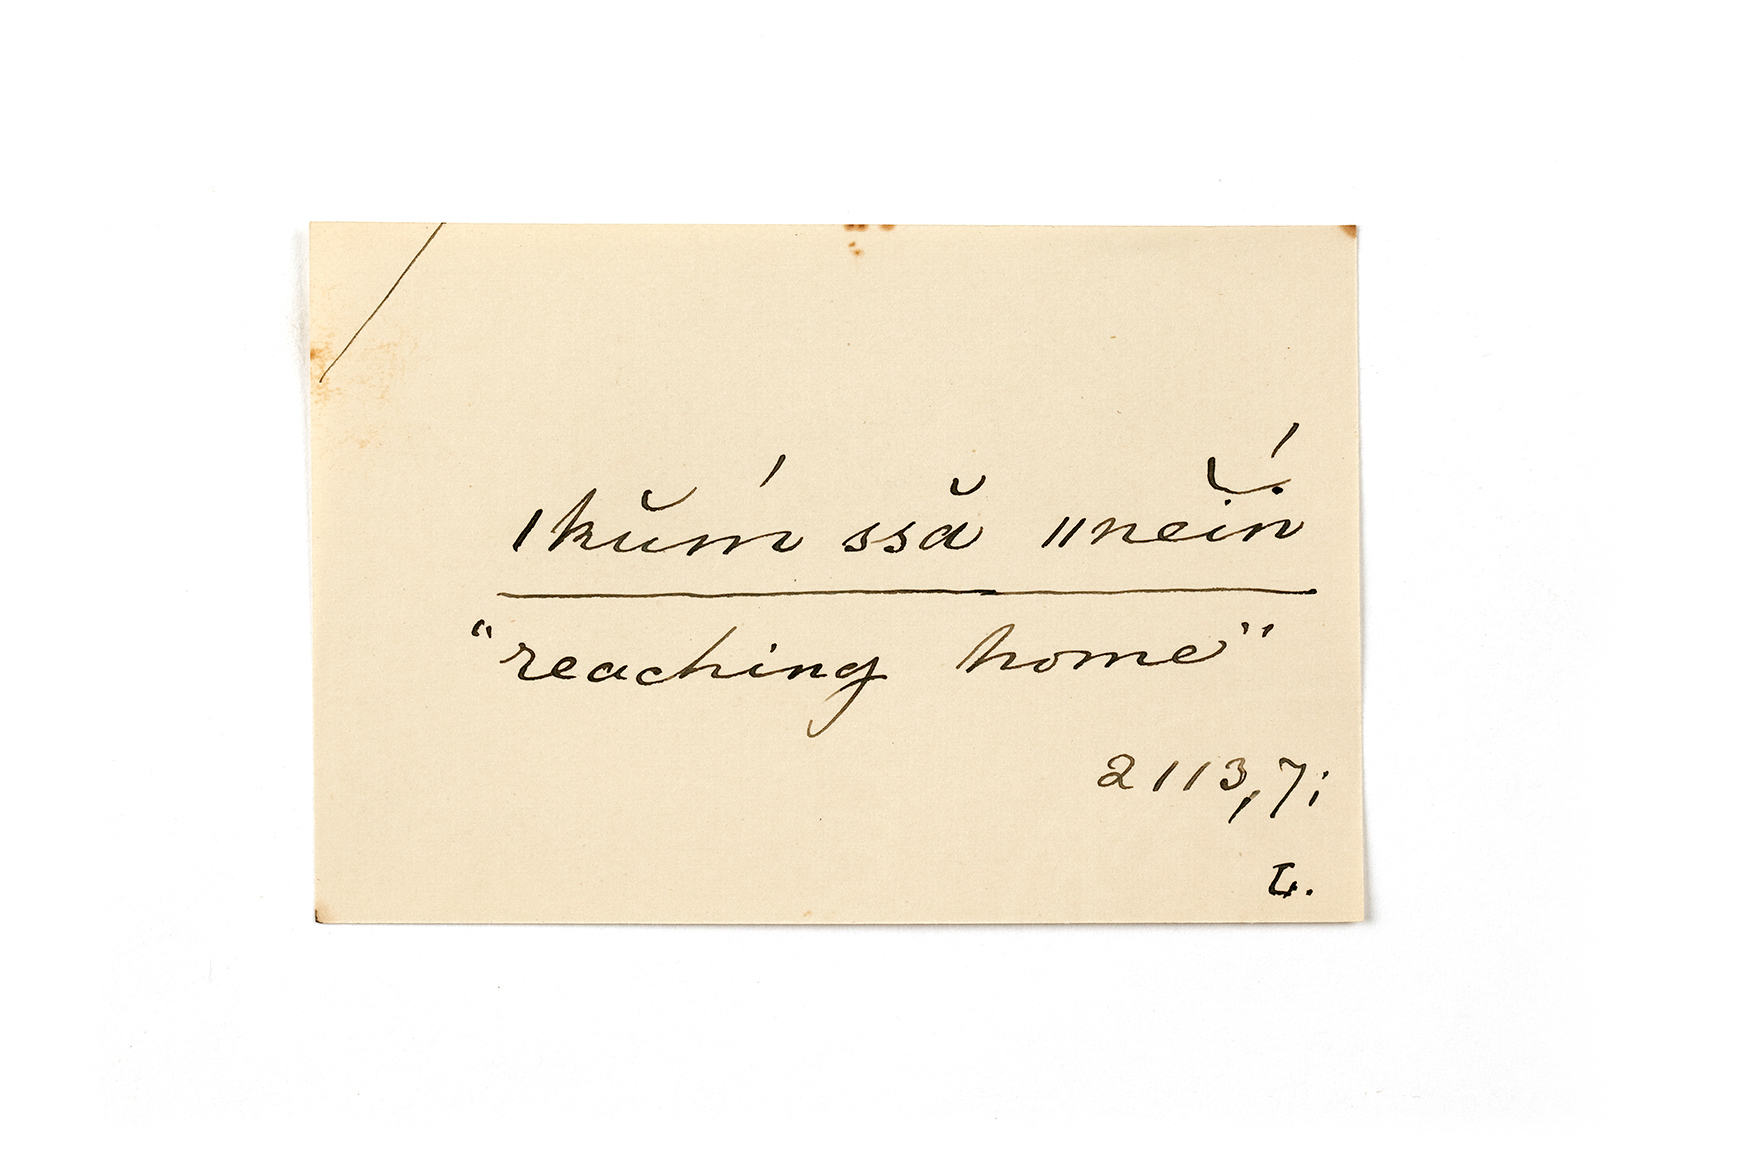 ǀkŭḿ ssă ǁnĕiń
"reaching home"
2113,7;
L.